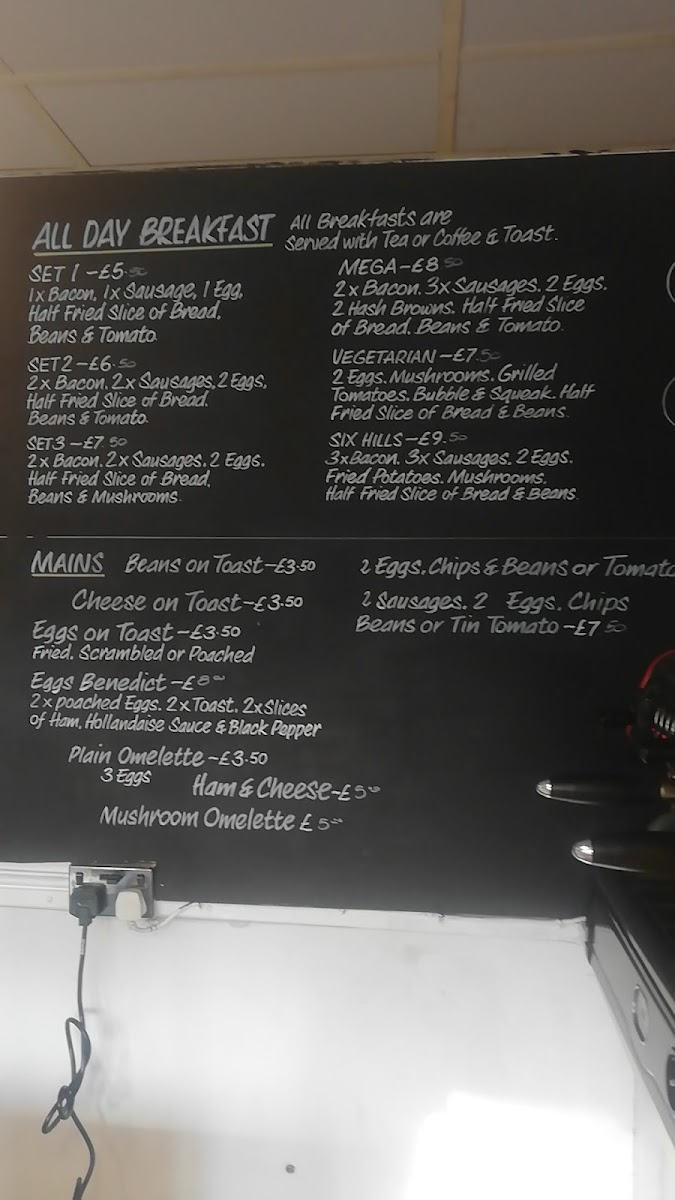 ALL DAY BREAKFAST
All Breakfasts are
served with Tea or Coffee & Toast.
SET 1 -£5.50
1x Bacon, 1x Sausage, 1 Egg,
Half Fried Slice of Bread,
Beans & Tomato.
SET 2 -£6.50
2x Bacon. 2x Sausages, 2 Eggs,
Half Fried Slice of Bread.
Beans & Tomato.
SET 3 -£7.50
2x Bacon. 2x Sausages. 2 Eggs.
Half Fried Slice of Bread,
Beans & Mushrooms.
MEGA-£8.50
2x Bacon. 3x Sausages. 2 Eggs.
2 Hash Browns. Half Fried Slice
of Bread. Beans & Tomato.
VEGETARIAN -£7.50
2 Eggs. Mushrooms. Grilled
Tomatoes. Bubble & Squeak. Half
Fried Slice of Bread & Beans.
SIX HILLS-£9.50
3x Bacon. 3x Sausages. 2 Eggs.
Fried Potatoes. Mushrooms.
Half Fried Slice of Bread & Beans.
MAINS
Beans on Toast-£3.50
Cheese on Toast-£3.50
Eggs on Toast -£3.50
Fried. Scrambled or Poached
Eggs Benedict -£8.00
2x poached Eggs. 2x Toast. 2x Slices
of Ham. Hollandaise Sauce & Black Pepper
Plain Omelette -£3.50
3 Eggs
Ham & Cheese-£5.00
Mushroom Omelette £5.00
2 Eggs. Chips & Beans or Tomato
2 Sausages. 2 Eggs. Chips
Beans or Tin Tomato -£7.50